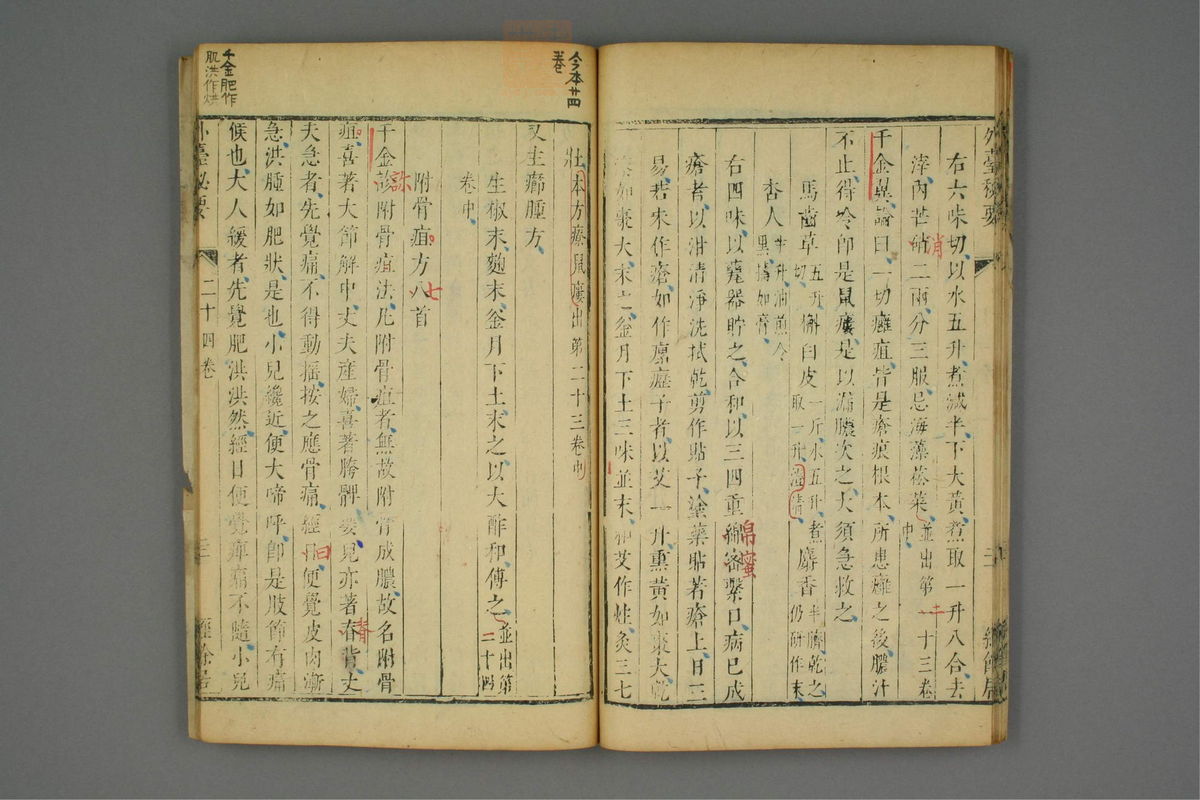 外臺秘要
右六味切以水五升煮減半下大黃煮取一升八合去
滓內芒硝二兩分三服忌海藻菘菜並出第十三卷中
千金翼論曰一切癰疽皆是瘡瘢根本所患癰之後膿汁
不止得冷即是鼠瘻是以漏膿次之大須急救之
馬齒草五升切 槲白皮一斤水五升煮取一升澄清 麝香半臍乾之仍研作末
杏人半升油煎令黑擣如膏
右四味以瓷器貯之合和以三四重綿密繫口病已成
瘡者以泔清淨洗拭乾剪作貼子塗藥貼若瘡上日三
易若未作瘡如作瘰癧子者以艾一升熏黃如棗大乾
如棗大末之釜月下土三味並末和艾作炷灸三七
壯本方療鼠瘻出第二十三卷中
又生癤腫方
生椒末麴末釜月下土末之以大酢和傅之並出第二十四
卷中
附骨疽方八首
千金診附骨疽法凡附骨疽者無故附骨成膿故名附骨
疽喜著大節解中丈夫產婦喜著胜髀嬰兒亦著脊背丈
夫急者先覺痛不得動搖按之應骨痛經日便覺皮肉漸
急洪腫如肥狀是也小兒纔近便大啼呼即是肢節有痛
候也大人緩者先覺肥洪洪然經日便覺痺痛不隨小兒
二十四卷
今本廿四
卷
千金肥作
肌洪作烘
硝
帛蜜
七
疹
日
脊